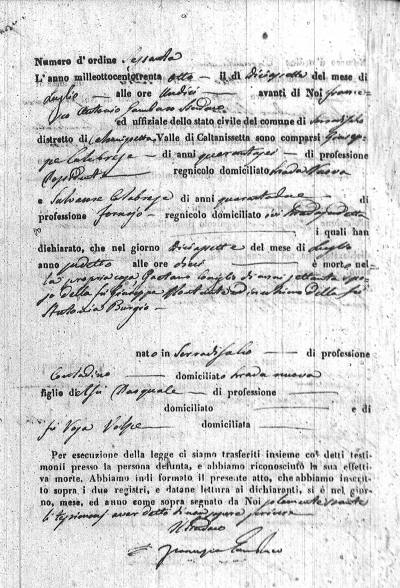 Numero d'ordine Sessanta
L'anno milleottocentotrenta otto il dì Diciassette del mese di
Luglio alle ore undici avanti di Noi France=
sco Antonio Lombardo Sindaco
ed uffiziale dello stato civile del comune di Serradifalco
distretto di Caltanissetta Valle di Caltanissetta sono comparsi Giusep=
pe Calabrese di anni quarantasei di professione
regnicolo domiciliato strada Nuova
e Salvatore Calabrese di anni quarantadue di
professione fornajo regnicolo domiciliato in strada sudetta
i quali han
dichiarato, che nel giorno Diciassette del mese di Luglio
anno sudetto alle ore dieci è morto nel=
la propria casa Gaetano di anni settanta spo=
so della fu Giuseppa ed in della fu
Antonia Burgio
nato in Serradifalco di professione
Contadino domiciliato strada nuova
figlio del fu Pasquale di professione
domiciliato e di
fu Volpe domiciliata
Per esecuzione della legge ci siamo trasferiti insieme co' detti testi-
monii presso la persona defunta, e abbiamo riconosciuto la sua effetti-
va morte. Abbiamo indi formato il presente atto, che abbiamo inscrit-
to sopra i due registri, e datane lettura ai dichiaranti, si è nel gior-
no, mese, ed anno come sopra segnato da Noi solamente
li testimonj aver detto di non sapere scrivere
Il Sindaco
Francesco Lombardo